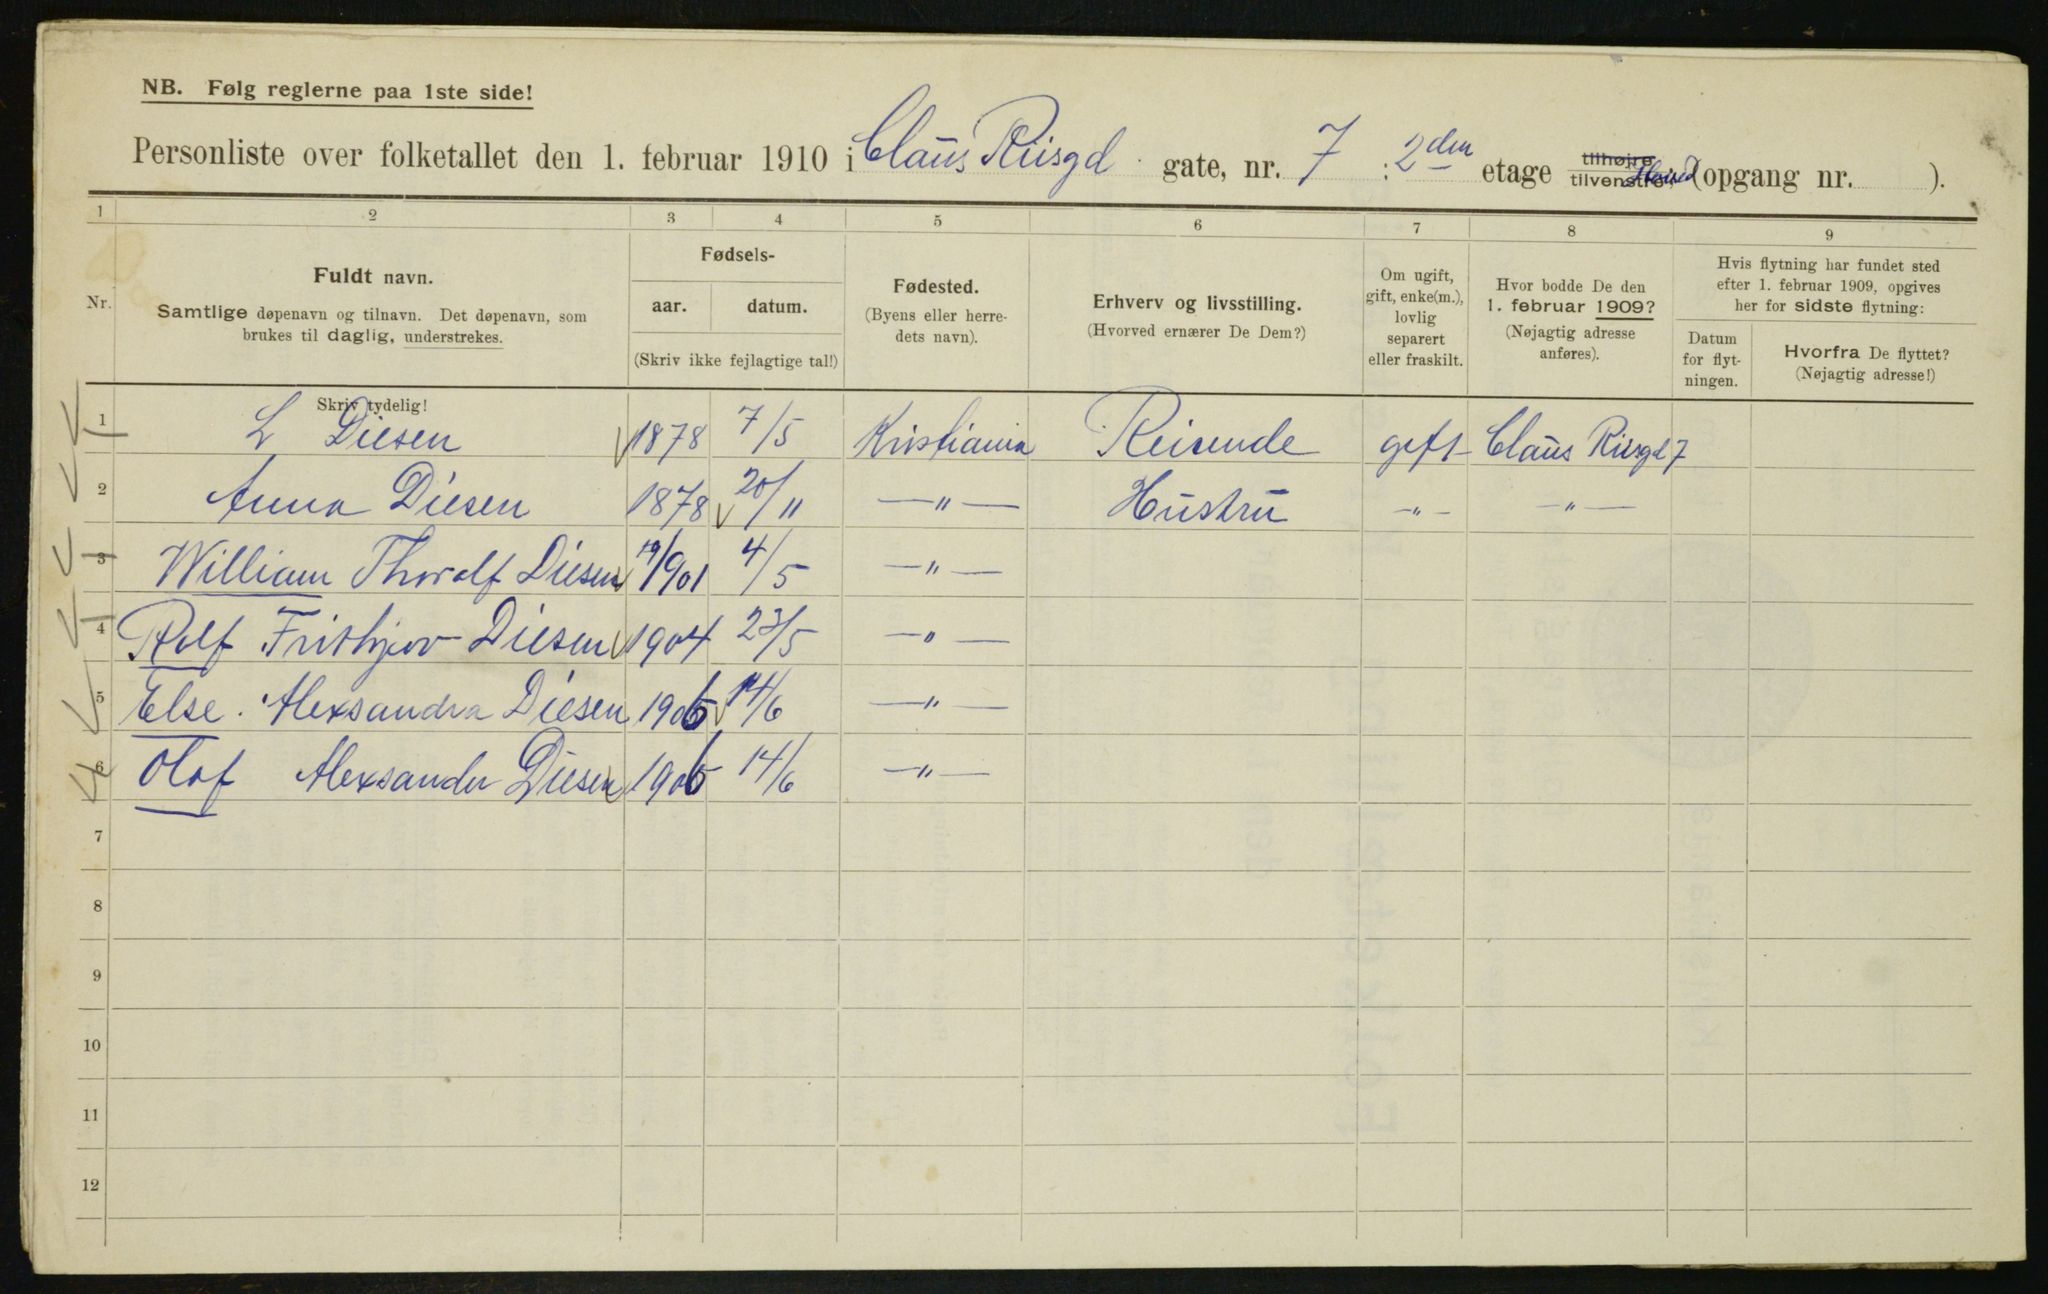 NB. Følg reglerne paa 1ste side!
Personliste over folketallet den 1. februar 1910 i Claus Riisgd gate, nr. 7 : 2den etage tilhøjre tilvenstre (opgang nr. ).
1 2 3 4 5 6 7 8 9
Nr.
Fuldt navn.
Samtlige døpenavn og tilnavn. Det døpenavn, som
brukes til daglig, understrekes.
Skriv tydelig!
Fødsels-
aar. datum.
(Skriv ikke fejlagtige tal!)
Fødested.
(Byens eller herre-
dets navn).
Erhverv og livsstilling.
(Hvorved ernærer De Dem?)
Om ugift,
gift, enke(m.),
lovlig
separert
eller fraskilt.
Hvor bodde De den
1. februar 1909?
(Nøjagtig adresse
anføres).
Hvis flytning har fundet sted
efter 1. februar 1909, opgives
her for sidste flytning:
Datum
for flyt-
ningen.
Hvorfra De flyttet?
(Nøjagtig adresse!)
1 L Diesen 1878 7/5 Kristiania Reisende gift Claus Riisgd 7
2 Anna Diesen 1878 20/11 — " — Hustru — " — — " —
3 William Thoralf Diesen 19/901 4/5 — " —
4 Rolf Frithjov Diesen 1904 23/5 — " —
5 Else Alexsandra Diesen 1906 14/6 — " —
6 Olaf Alexsander Diesen 1906 14/6 — " —
7
8
9
10
11
12